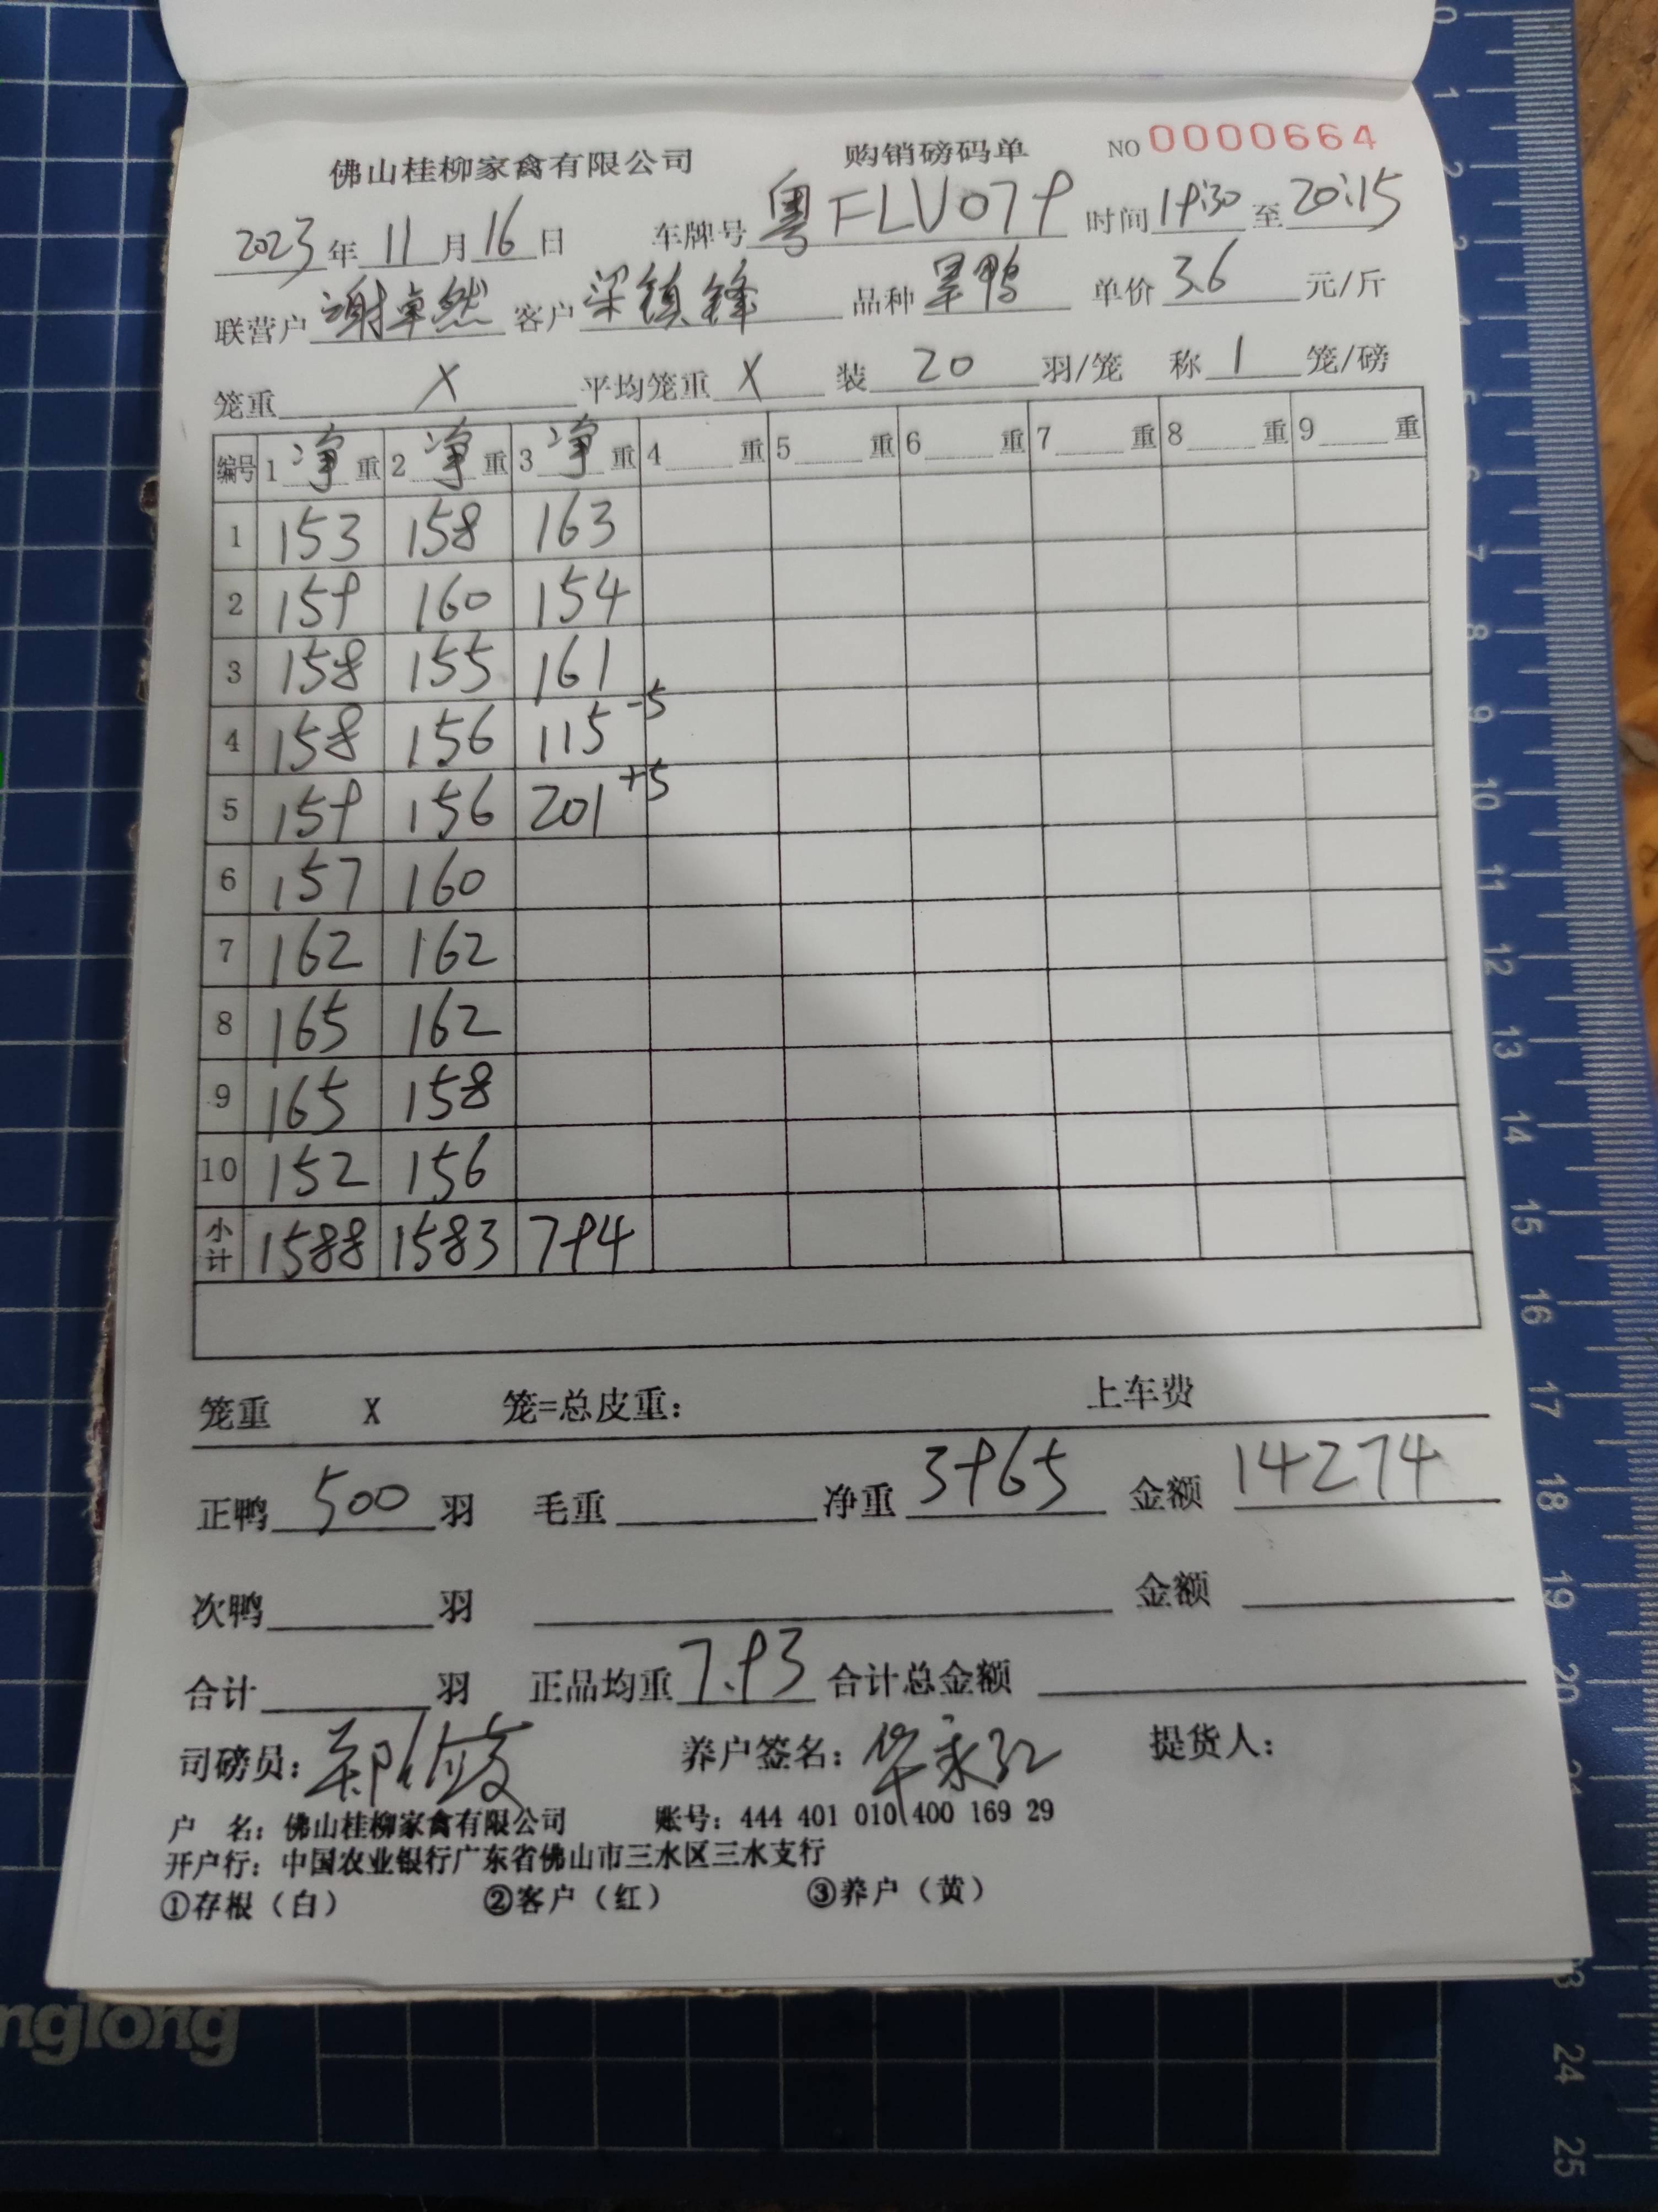 佛山桂柳家禽有限公司 购销磅码单 NO 0000664
2023年 11月 16日 车牌号 粤FLV079 时间 19:30 至 20:15
联营户 谢卓然 客户 梁镇锋 品种 旱鸭 单价 3.6 元/斤
笼重 X 平均笼重 X 装 20 羽/笼 称 1 笼/磅
编号 1 净 重 2 净 重 3 净 重 4 重 5 重 6 重 7 重 8 重 9 重
1 153 158 163
2 159 160 154
3 158 155 161
4 158 156 115 -5
5 159 156 201 +5
6 157 160
7 162 162
8 165 162
9 165 158
10 152 156
小计 1588 1583 794
笼重 X 笼=总皮重: 上车费
正鸭 500 羽 毛重 净重 3965 金额 14274
次鸭 羽 金额
合计 羽 正品均重 7.93 合计总金额
司磅员: 郑 养户签名: 华永红 提货人:
户 名: 佛山桂柳家禽有限公司 账号: 444 401 010 400 169 29
开户行: 中国农业银行广东省佛山市三水区三水支行
①存根(白) ②客户(红) ③养户(黄)
nglong
0 1 2 3 4 5 6 7 8 9 10 11 12 13 14 15 16 17 18 19 20 21 23 24 25